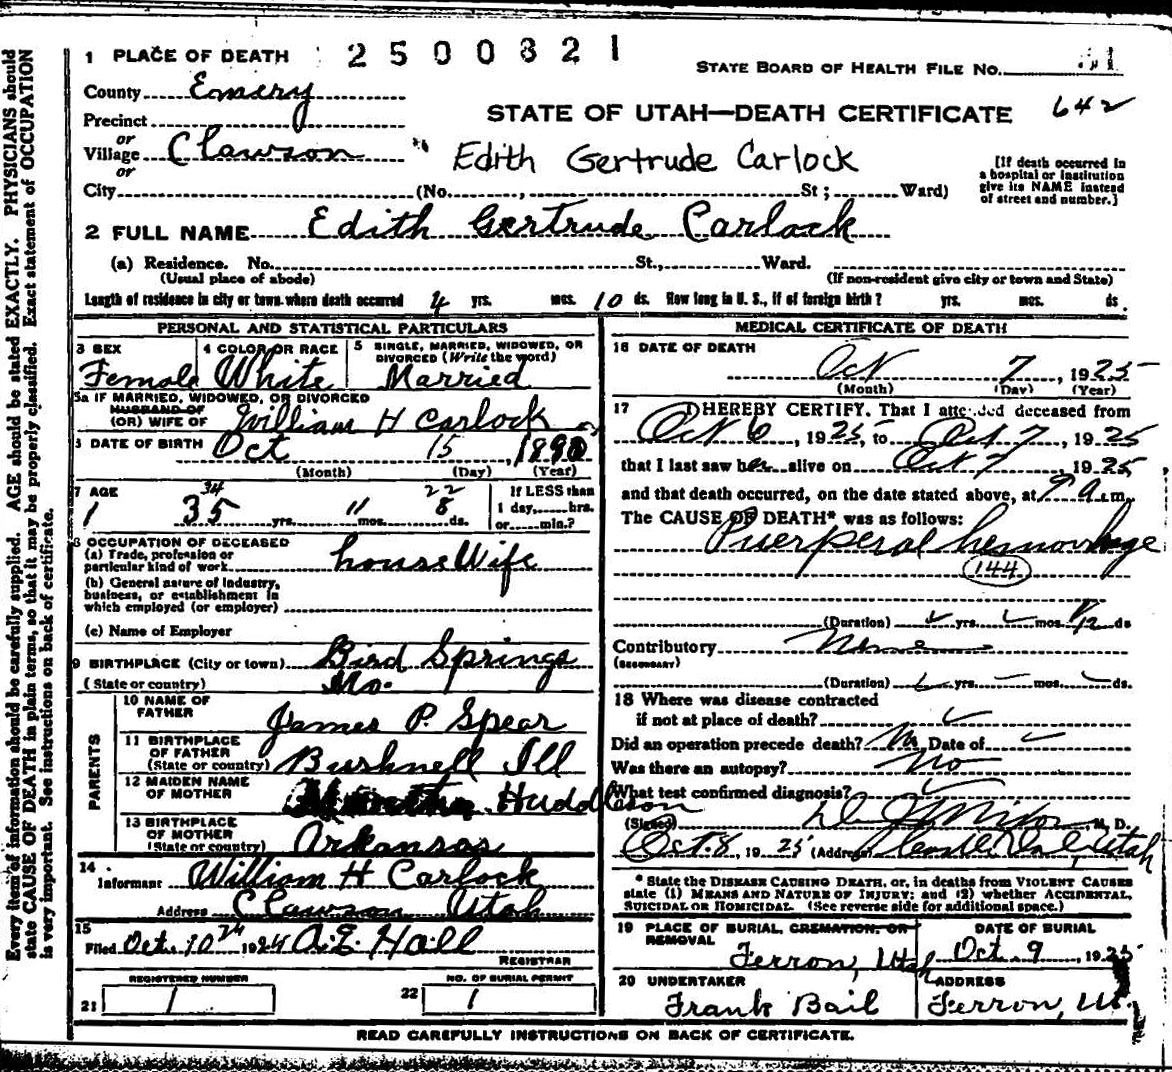 1 PLACE OF DEATH 2500321
STATE BOARD OF HEALTH FILE No. 51
County Emery
STATE OF UTAH—DEATH CERTIFICATE 642
Precinct
or
Village Clawson
Edith Gertrude Carlock
or
City (No. , St ; Ward)
[If death occurred in
a hospital or institution
give its NAME instead
of street and number.]
2 FULL NAME Edith Gertrude Carlock
(a) Residence. No. St., Ward.
(Usual place of abode) (If non-resident give city or town and State)
Length of residence in city or town where death occurred 4 yrs. mos. 10 ds. How long in U. S., if of foreign birth? yrs. mos. ds.
PERSONAL AND STATISTICAL PARTICULARS
3 SEX
Female
4 COLOR OR RACE
White
5 SINGLE, MARRIED, WIDOWED, OR
DIVORCED (Write the word)
Married
5a IF MARRIED, WIDOWED, OR DIVORCED
HUSBAND OF
(OR) WIFE OF William H Carlock
6 DATE OF BIRTH Oct 15 1890
(Month) (Day) (Year)
7 AGE
34 22
35 yrs. 11 mos. 8 ds.
If LESS than
1 day, hrs.
or min.?
8 OCCUPATION OF DECEASED
(a) Trade, profession or
particular kind of work housewife
(b) General nature of industry,
business, or establishment in
which employed (or employer)
(c) Name of Employer
9 BIRTHPLACE (City or town) Bird Springs
(State or country) Mo.
PARENTS
10 NAME OF
FATHER James P. Spear
11 BIRTHPLACE
OF FATHER
(State or country) Bushnell Ill
12 MAIDEN NAME
OF MOTHER Huddleson
13 BIRTHPLACE
OF MOTHER
(State or country) Arkansas
14
Informant William H Carlock
Address Clawson Utah
15
Filed Oct. 10 1924 A.E. Hall
REGISTRAR
REGISTERED NUMBER
21 1
NO. OF BURIAL PERMIT
22 1
MEDICAL CERTIFICATE OF DEATH
16 DATE OF DEATH
Oct 7, 1925
(Month) (Day) (Year)
17 I HEREBY CERTIFY, That I attended deceased from
Oct 6, 1925, to Oct 7, 1925
that I last saw her alive on Oct 7, 1925
and that death occurred, on the date stated above, at 9 a.m.
The CAUSE OF DEATH* was as follows:
Puerperal hemorrhage
144
(Duration) yrs. mos. 1/2 ds
Contributory None
(SECONDARY)
(Duration) yrs. mos. ds.
18 Where was disease contracted
if not at place of death?
Did an operation precede death? No Date of
Was there an autopsy? No
What test confirmed diagnosis?
(Signed) M. D.
Oct. 8, 1925 (Address) Utah
* State the DISEASE CAUSING DEATH, or, in deaths from VIOLENT CAUSES
state (1) MEANS AND NATURE OF INJURY; and (2) whether ACCIDENTAL,
SUICIDAL OR HOMICIDAL. (See reverse side for additional space.)
19 PLACE OF BURIAL, CREMATION, OR
REMOVAL
Ferron, Utah
DATE OF BURIAL
Oct. 9, 1925
20 UNDERTAKER
Frank Bail
ADDRESS
Ferron, Ut.
READ CAREFULLY INSTRUCTIONS ON BACK OF CERTIFICATE.
Every item of information should be carefully supplied. AGE should be stated EXACTLY. PHYSICIANS should
state CAUSE OF DEATH in plain terms, so that it may be properly classified. Exact statement of OCCUPATION
is very important. See instructions on back of certificate.